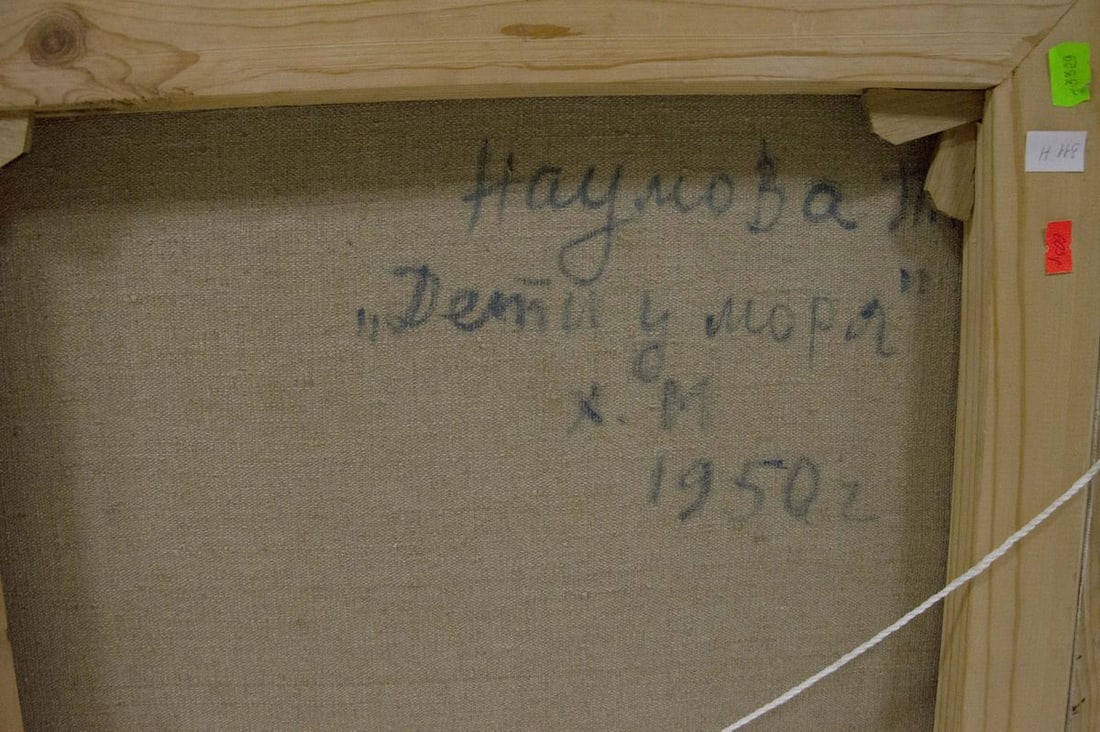 Наумова
„Дети у моря"
х. м
1950г